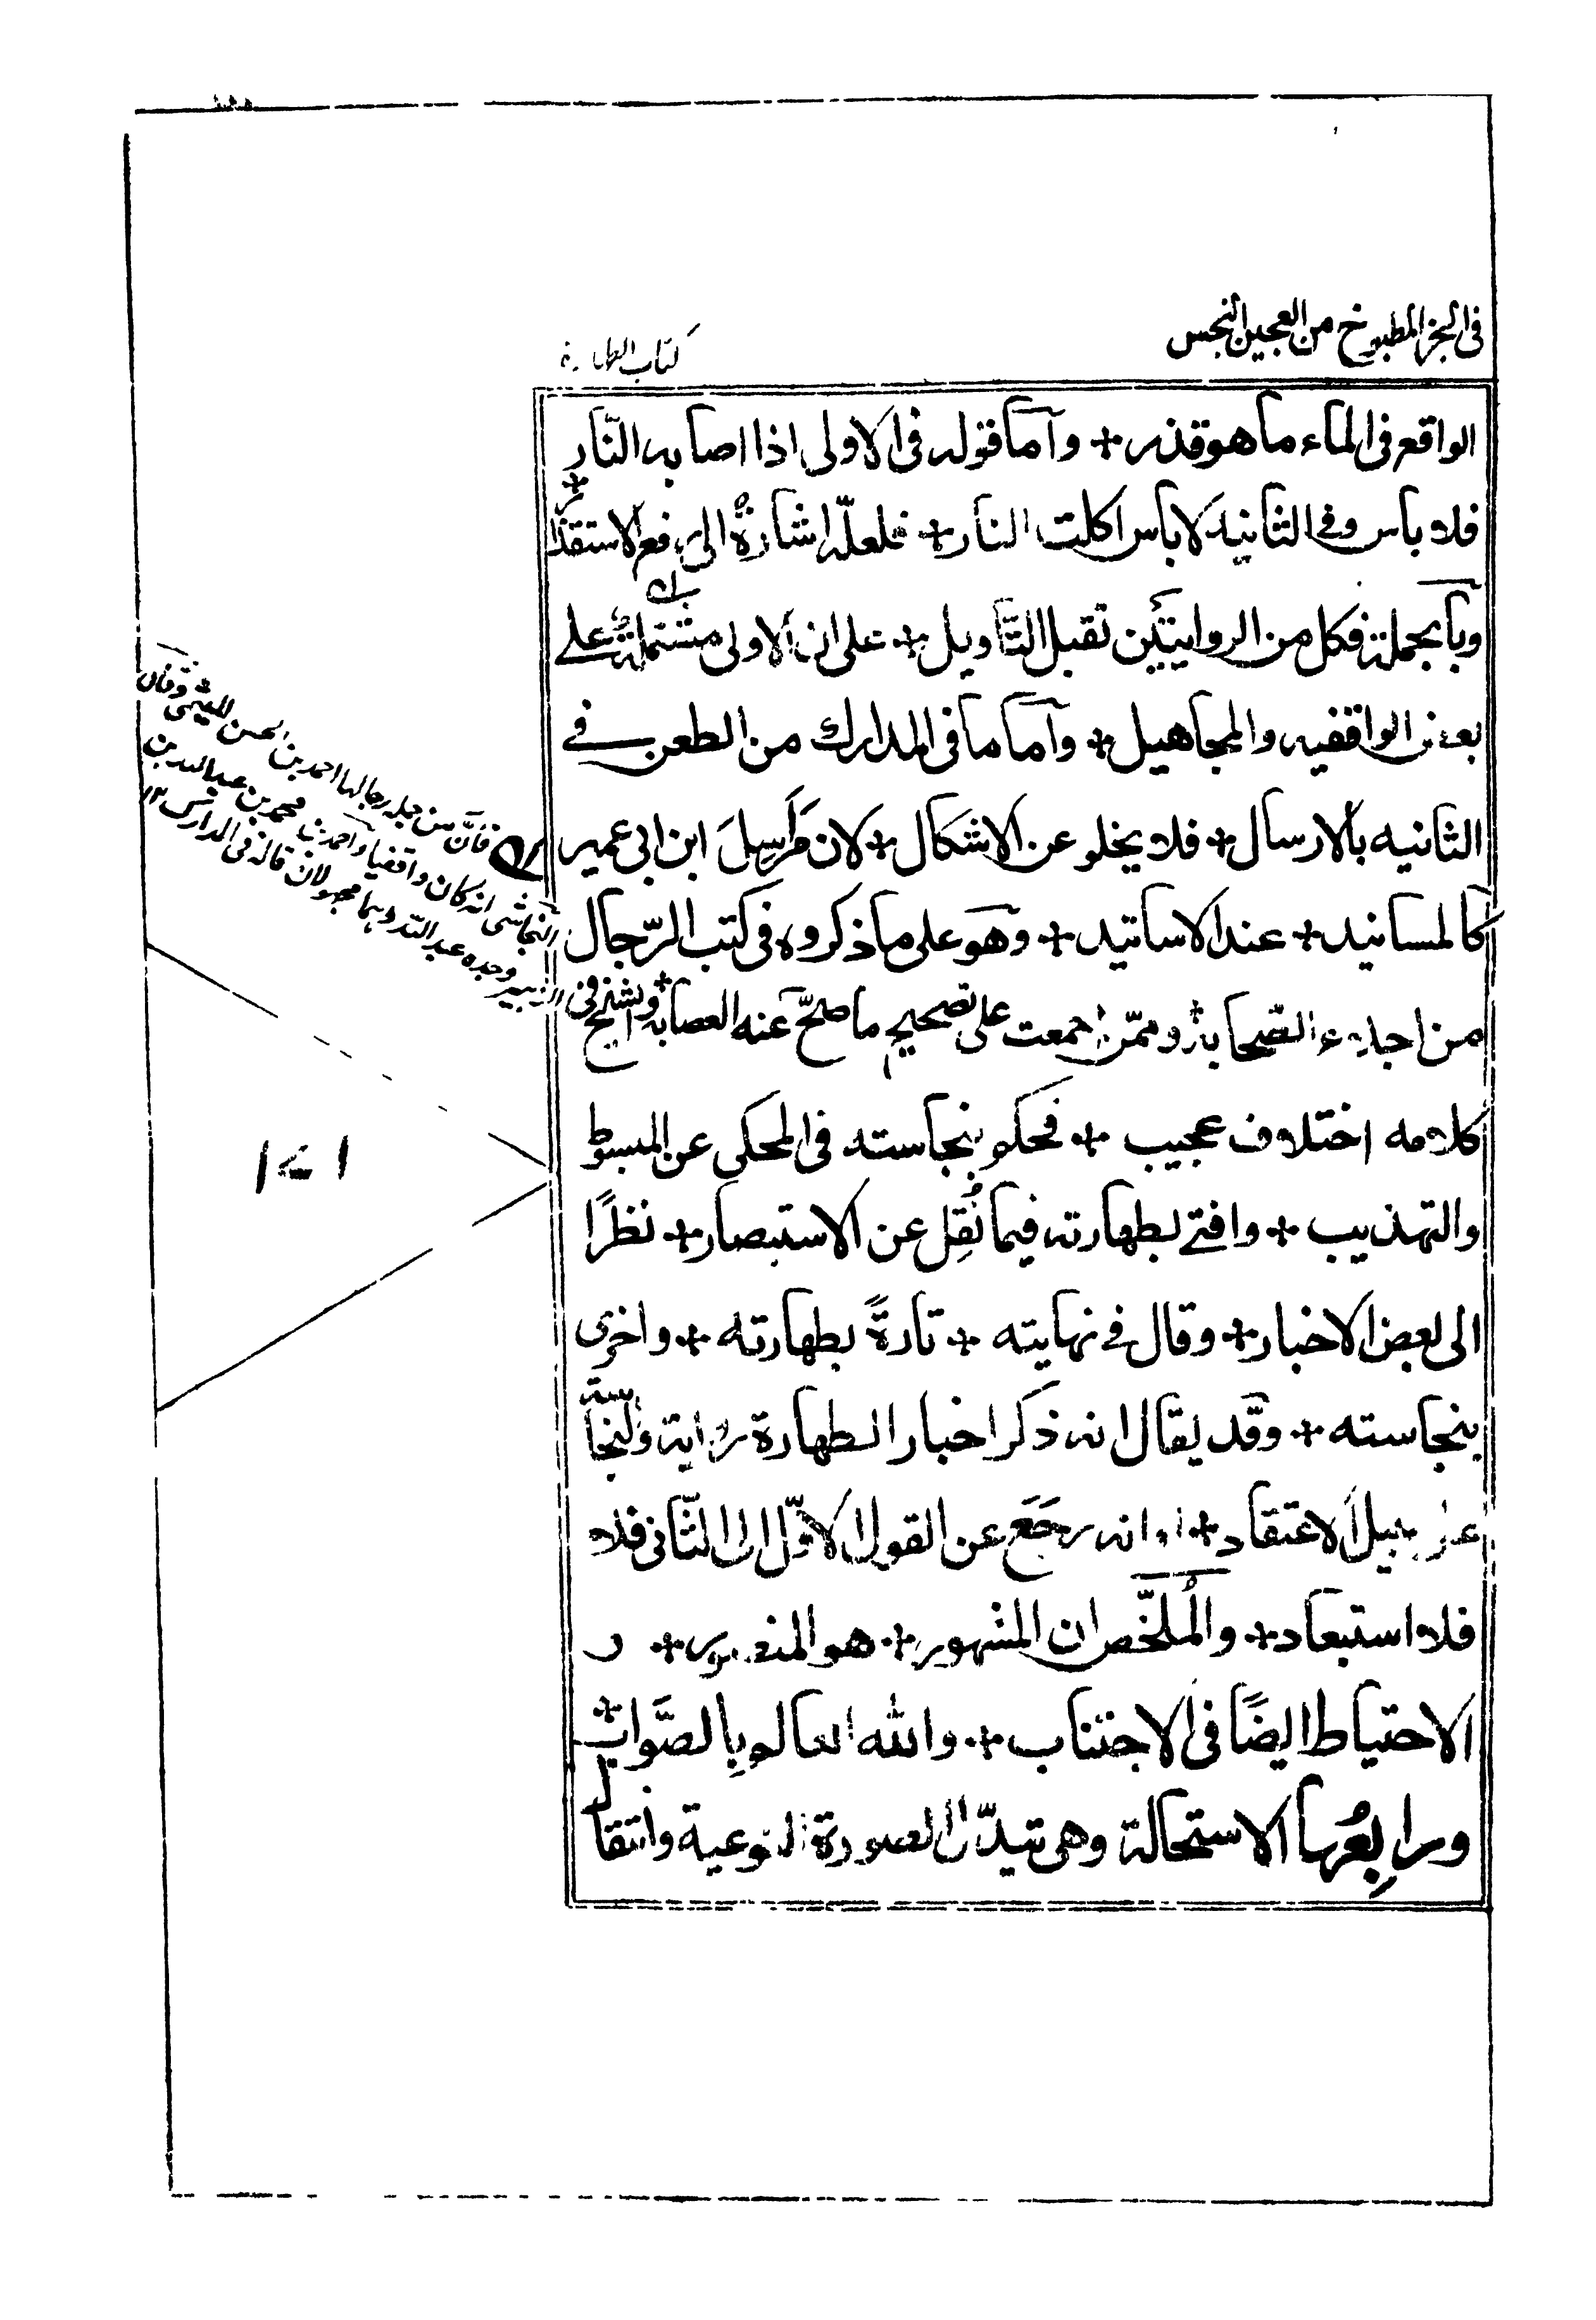 فى الخبز المطبوخ من العجين النجس
كتاب الطهارة
الواقع فى الماء ما هو قذر + وأما قوله فى الاولى اذا اصابه النّار
فلا باس وفى الثانية لا باس اكلت النار + فلعلّه اشارةٌ الى رفع الاستقذار +
وبالجملة فكل من الروايتين تقبل التّاويل + على ان الاولى مشتملةٌ على
بعض الواقفيه والمجاهيل + وأما ما فى المدارك من الطعن فى
الثانيه بالارسال + فلا يخلو عن الاشكال + لان مَراسِلَ ابن ابى عمير
كالمسانيد + عند الاساتيد + وهو على ما ذكروه فى كتب الرّجال
من اجلاء الصّحابة + وممّن اجمعت على تصحيح ما صحّ عنه العصابة + وللشيخ فى
كلامه اختلاف عجيب + فحكم بنجاسته فى المحكى عن المبسوط
والتهذيب + وافتى بطهارته فيما نُقِل عن الاستبصار + نظرًا
الى بعض الاخبار + وقال فى نهايته + تارةً بطهارته + واخرى
بنجاسته + وقد يقال انه ذكر اخبار الطهارة رواية والنجاسة
على سبيل الاعتقاد + او انه رجَعَ عن القول الاوّل الى الثّانى فلا
فلا استبعاد + والمُلخّص ان المشهور + هو المنصور + و
الاحتياط ايضًا فى الاجتناب + والله العالم بِالصَّواب +
ورابِعُها الاستحالة وهى تبدّل الصورة النوعية وانتقال
فانّ من جملة رجالها احمد بن الحسن الميثمى وقال
النجاشى انه كان واقفيا واحمد بن محمد بن عبد الله بن
الزبير وجده عبد الله وهما مجهولان قاله فى المدارك ١٢
١٢١